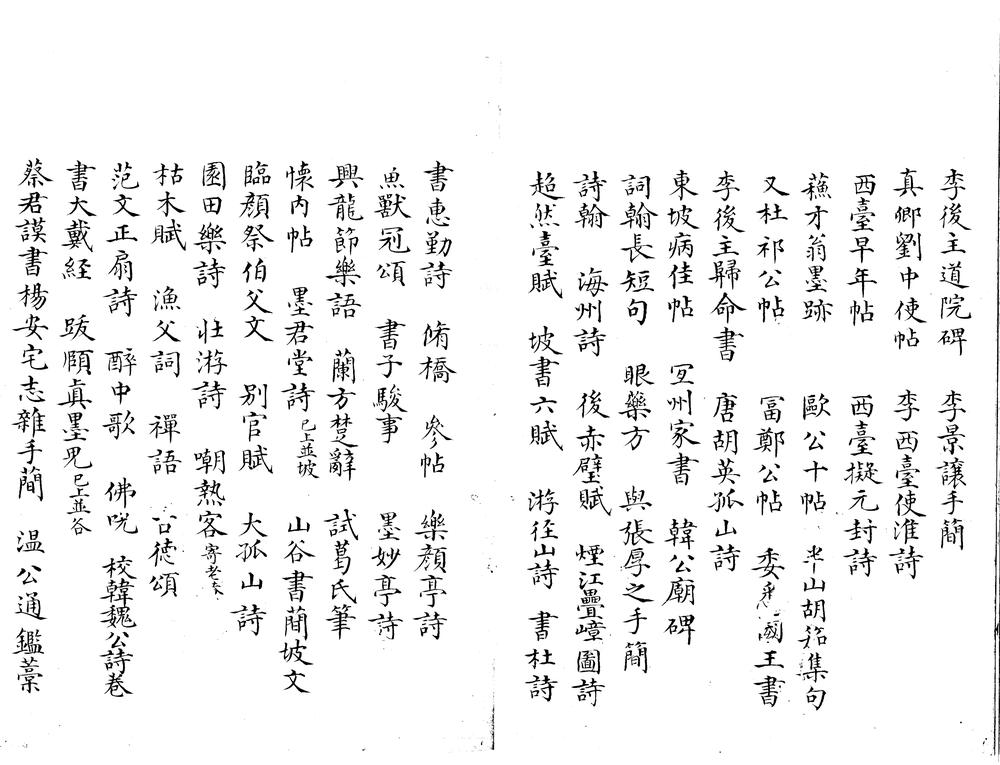 李後主道院碑　李景讓手簡
真卿劉中使帖　李西臺使淮詩
西臺早年帖　西臺擬元封詩
蘓才翁墨跡　歐公十帖　半山胡笳集句
又杜祁公帖　冨鄭公帖　委國王書
李後主歸命書　唐胡英孤山詩
東坡病佳帖　宻州家書　韓公廟碑
詞翰長短句　眼藥方　與張厚之手簡
詩翰　海州詩　後赤壁賦　煙江疊嶂圖詩
超然臺賦　坡書六賦　游徑山詩　書杜詩
書惠勤詩　脩橋　參帖　樂顔亭詩
魚獸冠頌　書子駿事　墨妙亭詩
興龍節樂語　蘭方楚辭　試葛氏筆
懷內帖　墨君堂詩已上並坡　山谷書簡坡文
臨顔祭伯父文　別官賦　大孤山詩
園田樂詩　壯游詩　嘲熱客寄老
枯木賦　漁父詞　禪語　古德頌
范文正扇詩　醉中歌　佛呪　校韓魏公詩卷
書大戴經　䟦頋眞墨皃已上並谷
蔡君謨書楊安宅志雜手簡　温公通鑑藁